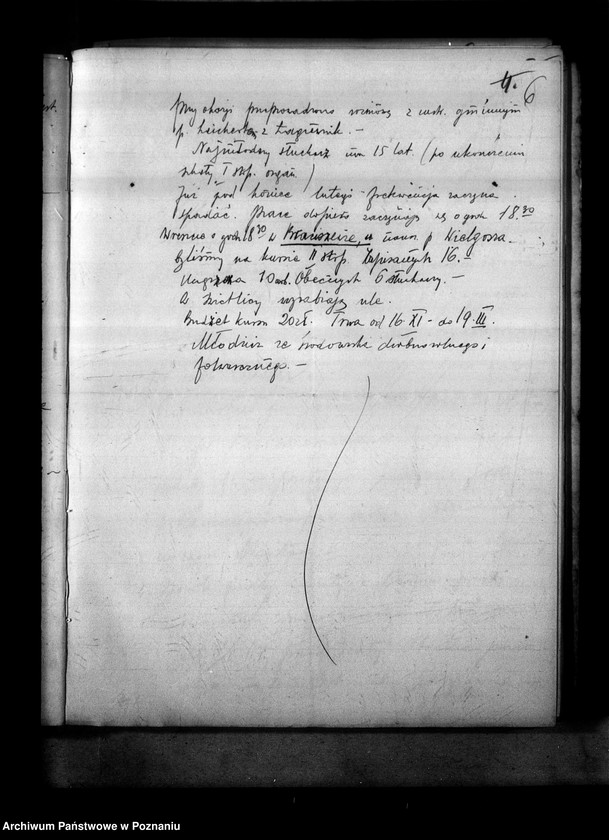 4. 6
Przy okazji przeprowadzono rozmowę z instr. gminnym
p. z
Najmłodszy słuchacz ma 15 lat. (po ukończeniu
szkoły I stop. organ.)
Już pod koniec lutego frekwencja zaczyna
spadać. Pracę dopiero zaczynają się o godz 18.30
o godz 18 30 w p. Kielgosza.
Byliśmy na kursie II stop. Zapisanych 16.
10 Obecnych 6 słuchaczy. —
W świetlicy wyrabiają ule.
Budżet kursu 20 zł. Trwa od 16 XI - do 19. III.
Młodzież ze środowiska drobnorolnego i
folwarcznego. —
Archiwum Państwowe w Poznaniu